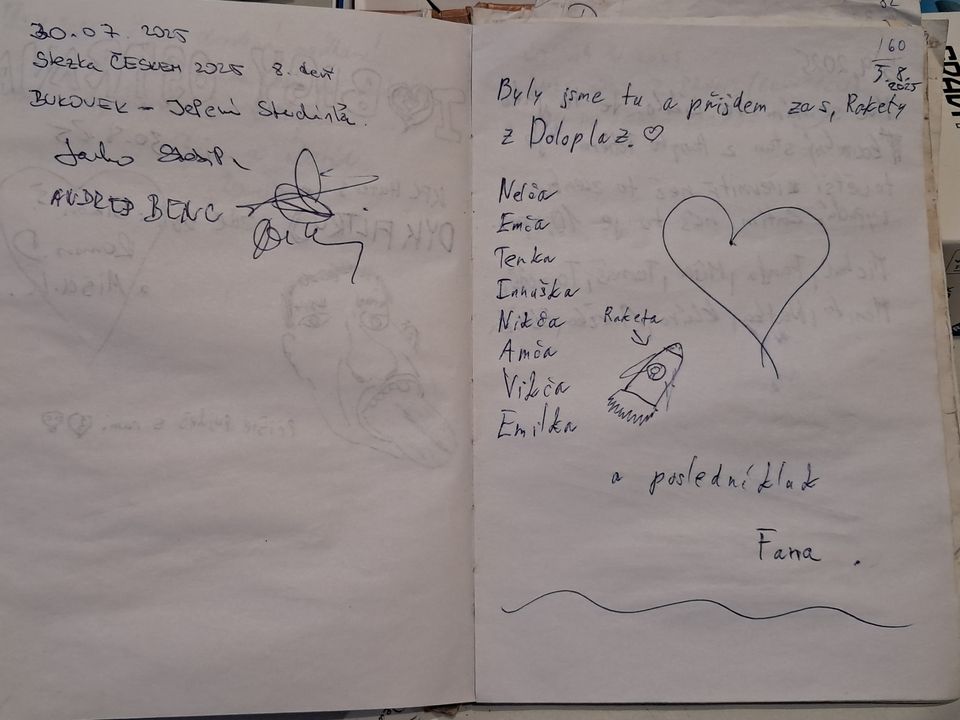 30.07.2025
Stezka ČESKEM 2025 8. deň
BUKOVEK - Jelení Studánka.
Janko
ANDREJ BENC
160
5.8.
2025
Byly jsme tu a přijdem zas, Rakety
z Doloplaz. ♡
Nelča
Emča
Terka
Innuška
Nikča
Raketa
Amča
Vikča
Emilka
a poslední kluk
Fana.